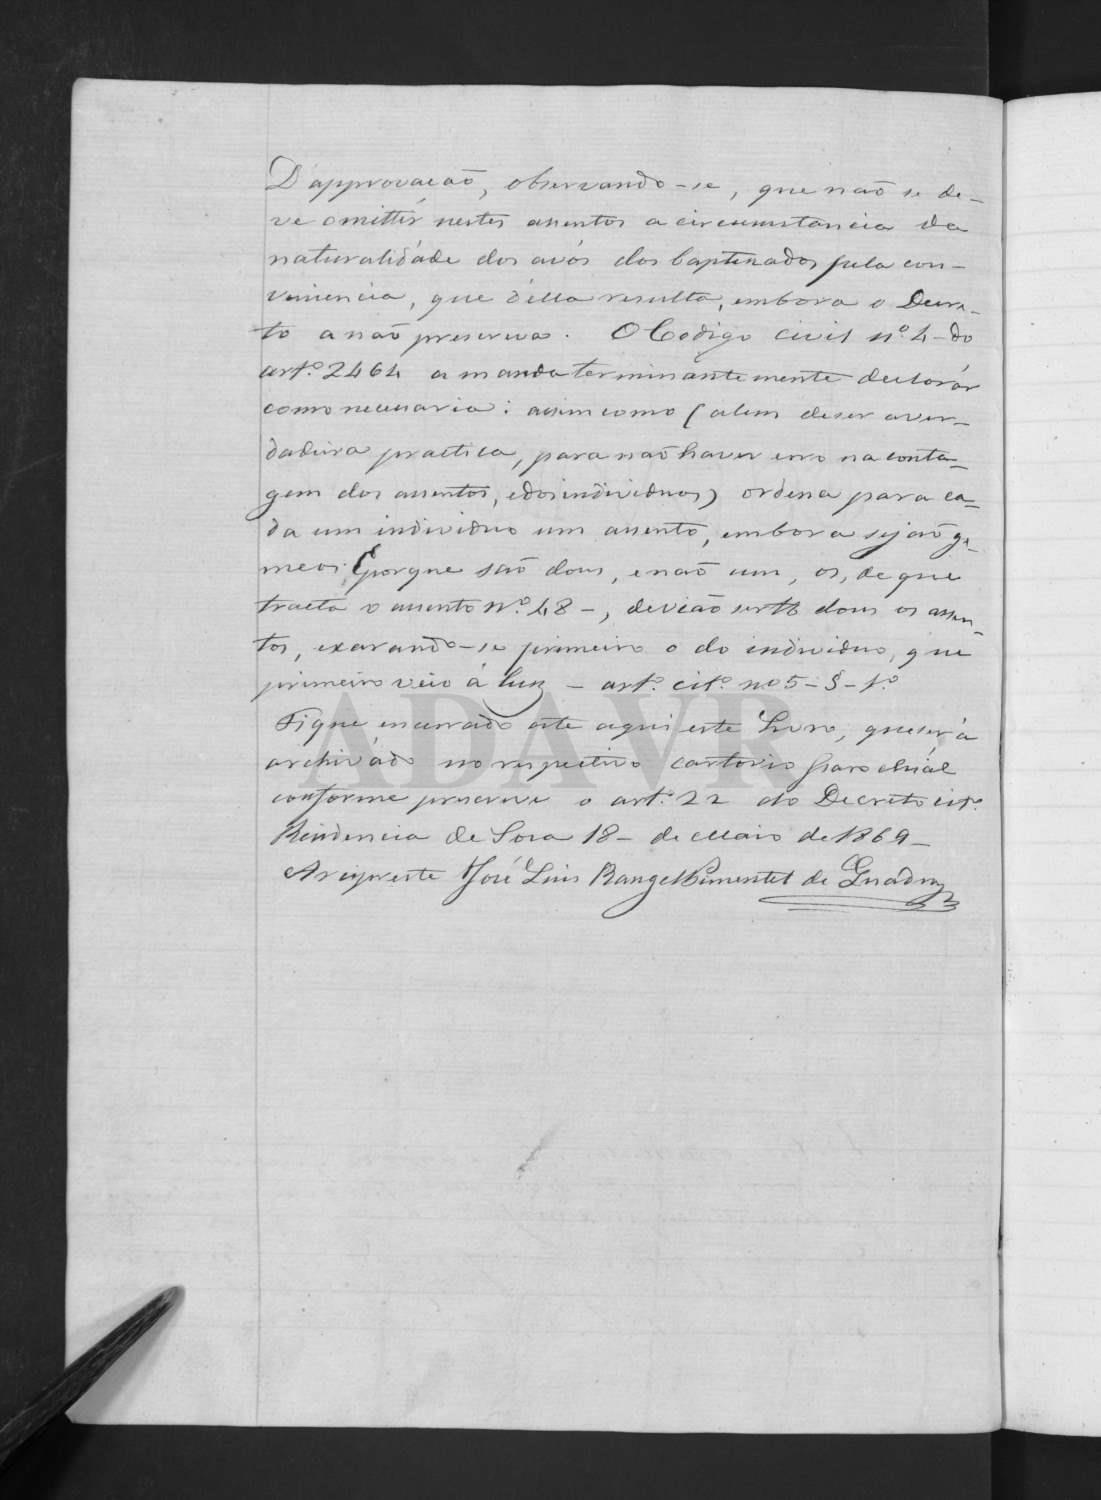 D'approvação, observando-se, que não se de-
ve omittir nestes assentos a circumstancia da
naturalidade dos avós dos baptizados pela con-
veniencia, que d'ella resulta, embora o Decre-
to a não prescreva. O Codigo Civil nº 4 - do
artº 2464 a manda terminantemente declarár
como necessaria: assim como (alem de ser a ver-
dadeira practica, para não haver erro na conta-
gem dos assentos, e dos individuos) ordena para ca-
da um individuo um assento, embora sejão ge-
meos. E porque são dous, e não um, os, de que
tracta o assento Nº 48 -, devião ser dous os assen-
tos, exarando-se primeiro o do individuo, que
primeiro veio á luz - artº citº nº 5 - § - 1º
Fique encerrado até aqui este Livro, que será
archivádo no respectivo cartorio parochiál
conforme prescreve o artº 22 do Decreto citº
Residencia de Soza 18 - de Maio de 1869 -
Arcypreste José Luis Rangel Pimentel de Quadroz
ADAVR